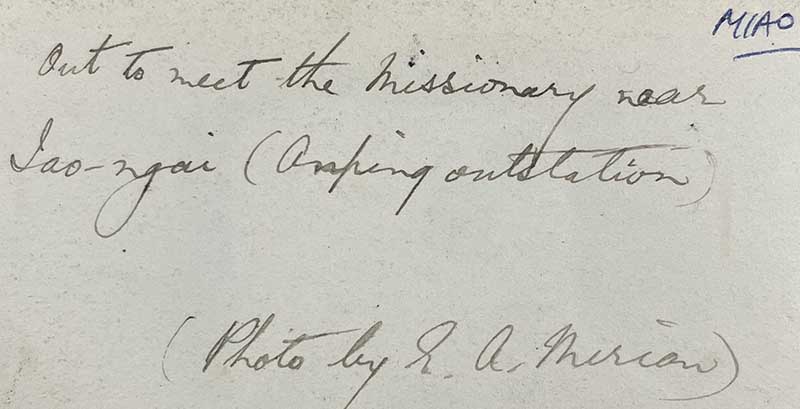 MIAO
Out to meet the Missionary near
(Anping outstation)
(Photo by E. A. Merian)